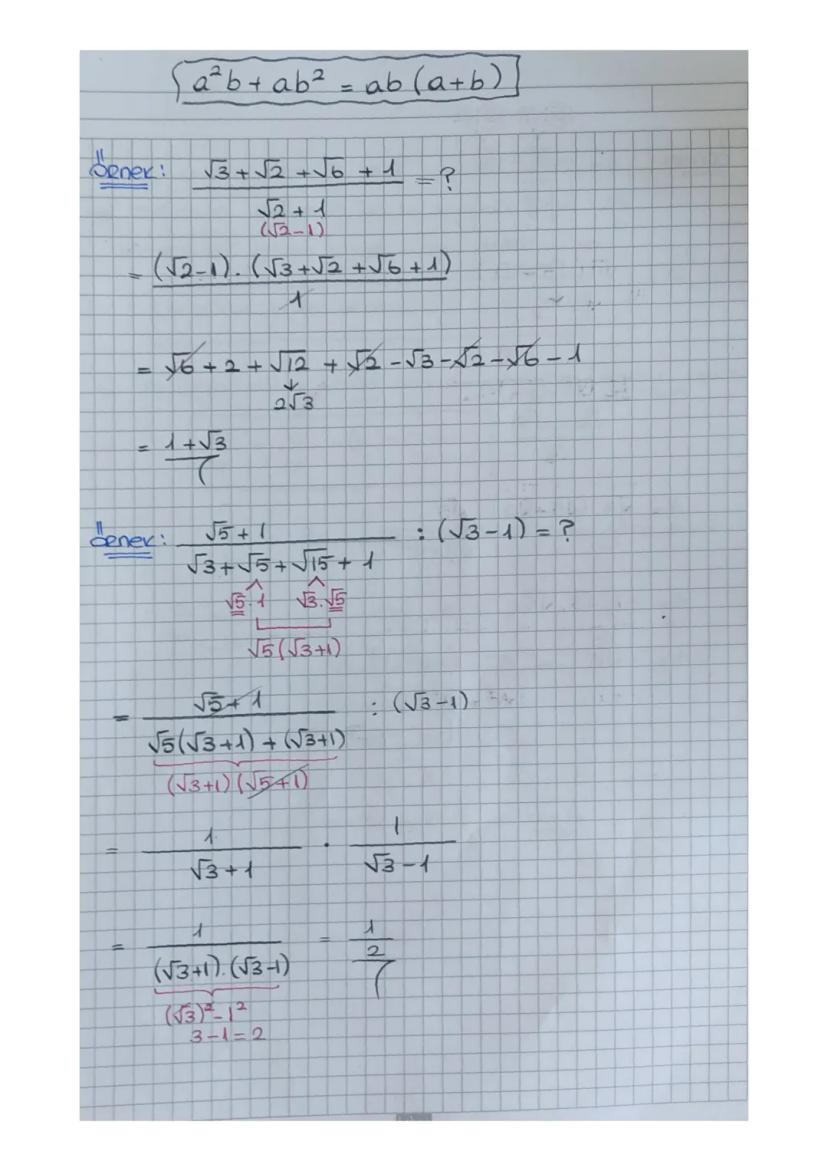 a²b + ab² = ab (a+b)
Örnek: (√3 + √2 + √6 + 1) / (√2 + 1) = ?
(√2-1)
= (√2-1) . (√3+√2 +√6+1) / 1
= √6 + 2 + √12 + √2 - √3 - √2 - √6 - 1
2√3
= 1+√3
Örnek: (√5 + 1) / (√3 + √5 + √15 + 1) : (√3 - 1) = ?
√5 . 1 √3 . √5
√5(√3+1)
= (√5+1) / (√5(√3+1) + (√3+1)) : (√3-1)
(√3+1) (√5+1)
= 1 / (√3+1) . 1 / (√3-1)
= 1 / ((√3+1).(√3-1)) = 1 / 2
(√3)² - 1²
3-1=2